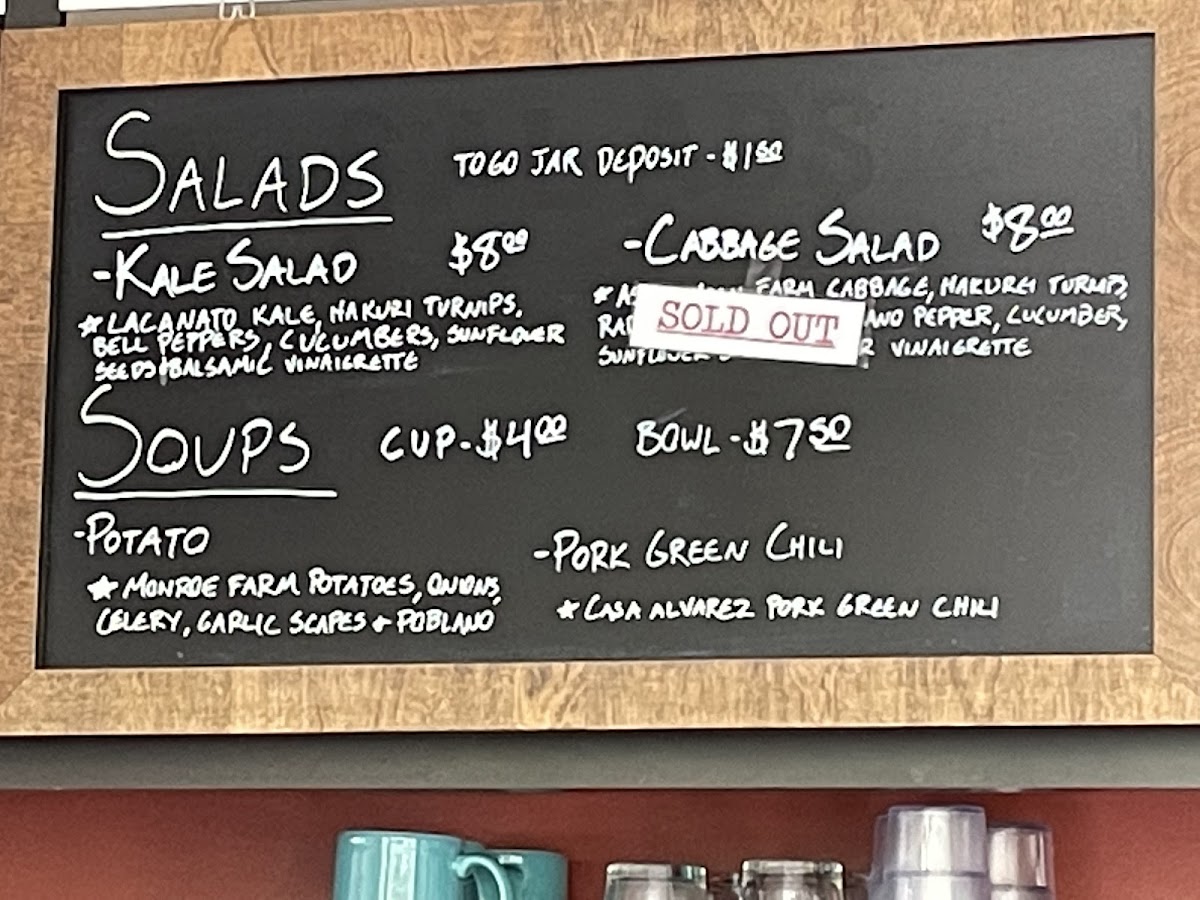 SALADS
TOGO JAR DEPOSIT - $1 50
- KALE SALAD $8 00
★ LACANATO KALE, HAKURI TURNIPS,
BELL PEPPERS, CUCUMBERS, SUNFLOWER
SEEDS & BALSAMIC VINAIGRETTE
- CABBAGE SALAD $8 00
FARM CABBAGE, HAKUREI TURNIP,
PEPPER, CUCUMBER,
SUNFLOWER VINAIGRETTE
SOLD OUT
SOUPS CUP - $4 00 BOWL - $7 50
- POTATO
★ MONROE FARM POTATOES, ONIONS,
CELERY, GARLIC SCAPES + POBLANO
- PORK GREEN CHILI
★ CASA ALVAREZ PORK GREEN CHILI